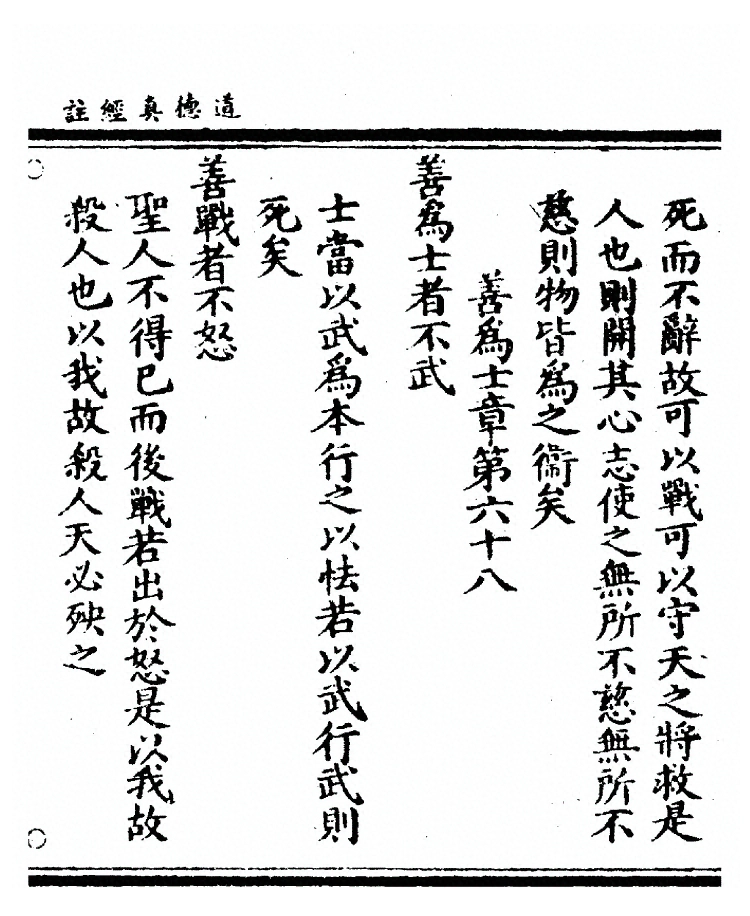 道德真經註
死而不辭故可以戰可以守天之將救是
人也則開其心志使之無所不慈無所不
慈則物皆爲之衞矣
善爲士章第六十八
善爲士者不武
士當以武爲本行之以怯若以武行武則
死矣
善戰者不怒
聖人不得已而後戰若出於怒是以我故
殺人也以我故殺人天必殃之